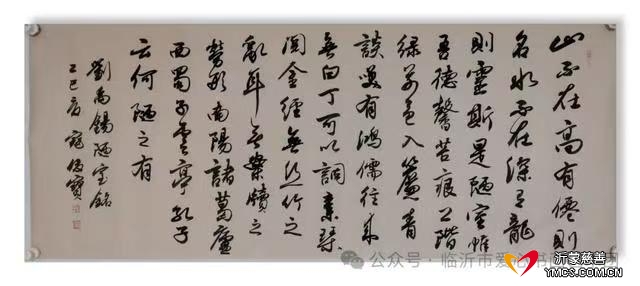 山不在高有僊則
名水不在深有龍
則靈斯是陋室惟
吾德馨苔痕上階
綠草色入簾青
談笑有鴻儒往來
無白丁可以調素琴
閱金經無絲竹之
亂耳無案牘之
勞形南陽諸葛廬
西蜀子雲亭孔子
云何陋之有
劉禹錫陋室銘
乙巳 寇 寶
公众号·临沂市爱心书 团
沂蒙慈善
YMCS.COM.CN